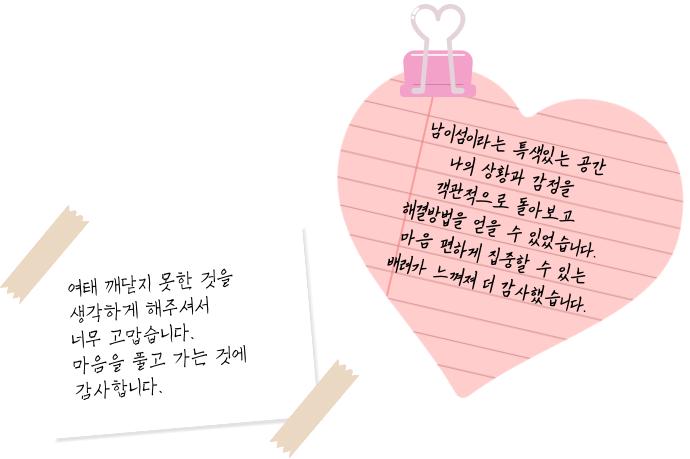 남이섬이라는 특색있는 공간
나의 상황과 감정을
객관적으로 돌아보고
해결방법을 얻을 수 있었습니다.
마음 편하게 집중할 수 있는
배려가 느껴져 더 감사했습니다.
여태 깨닫지 못한 것을
생각하게 해주셔서
너무 고맙습니다.
마음을 풀고 가는 것에
감사합니다.